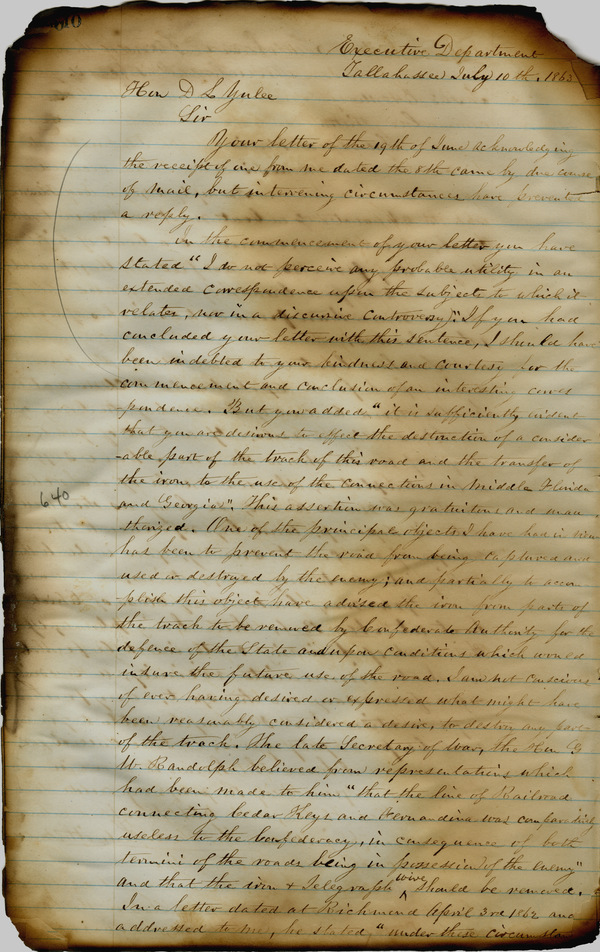 Executive Department
Tallahassee July 10th, 1863
Hon D L Yulee
Sir
Your letter of the 19th of June acknowledging
the receipt of one from me dated the 8th came by due course
of mail, but intervening circumstances have prevented
a reply.
In the commencement of your letter you have
stated "I do not perceive any probable utility in an
extended correspondence upon the subjects to which it
relates, nor in a discursive controversy." If you had
concluded your letter with this sentence, I should have
been indebted to your kindness and courtesy for the
commencement and conclusion of an interesting corres
pondence. But you added "it is sufficiently evident
that you are desirous to effect the destruction of a consider
able part of the track of this road and the transfer of
the iron to the use of the connections in Middle Florida
and Georgia". This assertion was gratuitous and unau
thorized. One of the principal objects I have had in view
has been to prevent the road from being captured and
used or destroyed by the enemy; and partially to accom
plish this object have advised the iron from parts of
640
the track to be removed by Confederate Authority for the
defence of the State and upon conditions which would
insure the future use of the road. I am not conscious
of ever having desired or expressed what might have
been reasonably considered a desire, to destroy any part
of the track. The late Secretary of War, the Hon G
W. Randolph believed from representations which
had been made to him "that the line of Railroad
connecting Cedar Keys and Fernandina was comparatively
useless to the Confederacy, in consequence of both
termini of the roads being in possession of the enemy"
and that the iron & Telegraph wire should be removed.
In a letter dated at Richmond April 3rd 1862 and
addressed to me, he stated, "under these circumstan